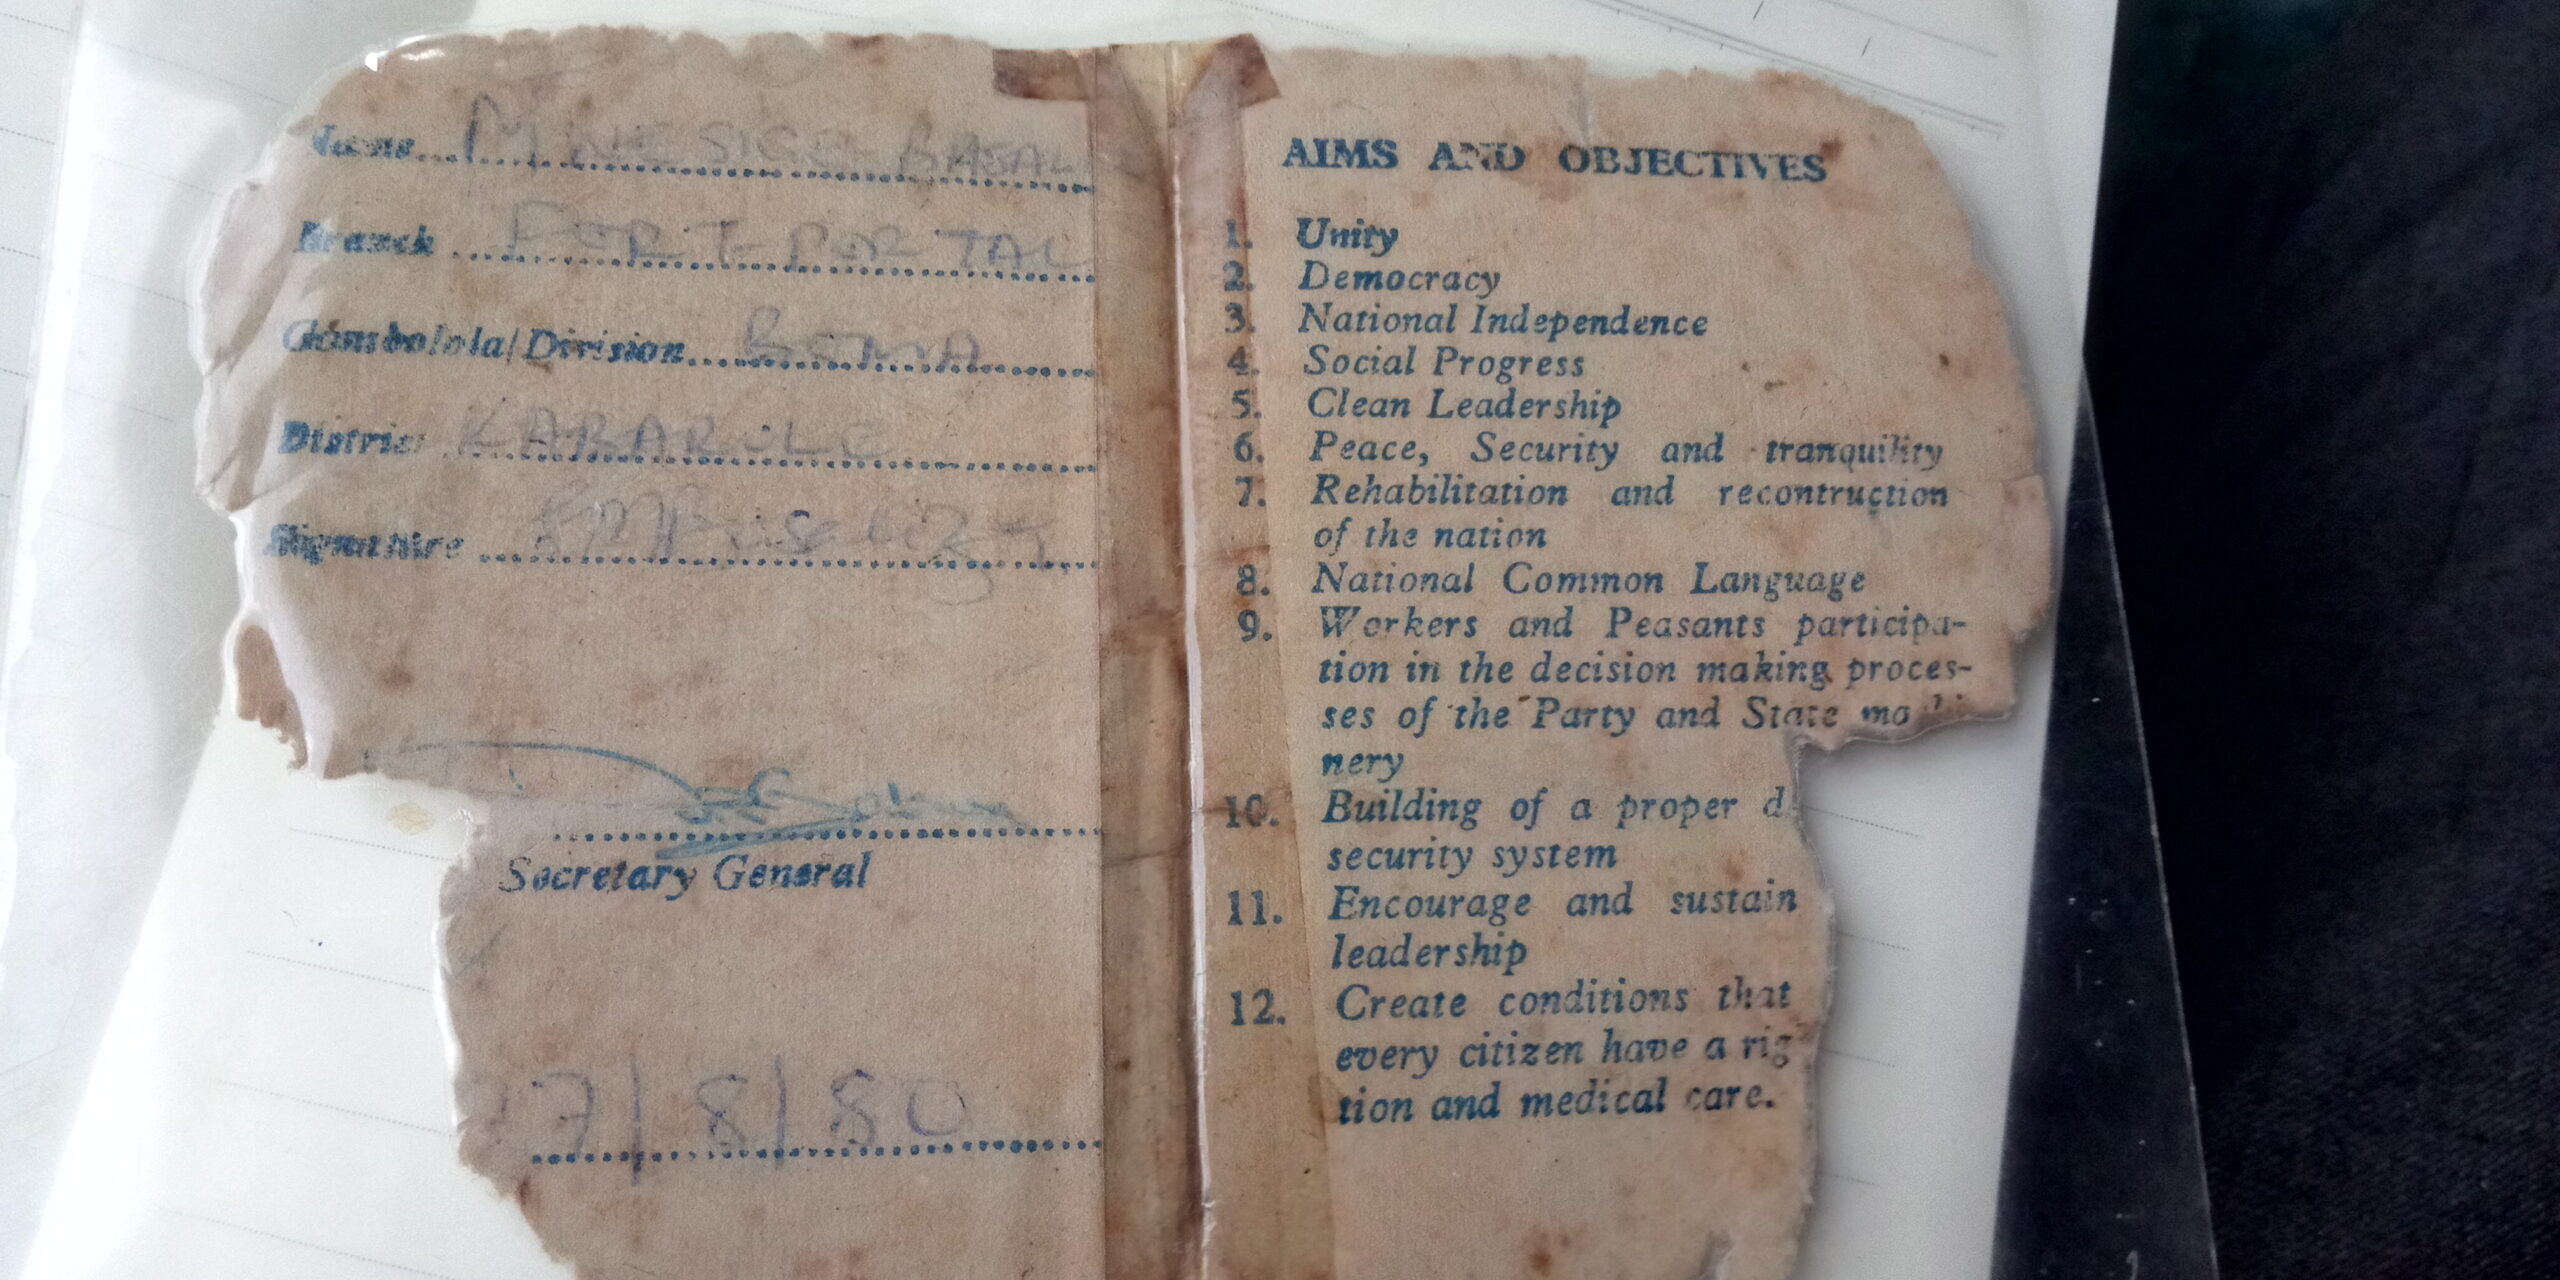 Name
Branch FORT PORTAL
Gombolola/Division BOMA
District KABAROLE
Signature
Secretary General
7/8/80
AIMS AND OBJECTIVES
1. Unity
2. Democracy
3. National Independence
4. Social Progress
5. Clean Leadership
6. Peace, Security and tranquility
7. Rehabilitation and recontruction
of the nation
8. National Common Language
9. Workers and Peasants participa-
tion in the decision making proces-
ses of the Party and State
nery
10. Building of a proper
security system
11. Encourage and sustain
leadership
12. Create conditions that
every citizen have a rig
tion and medical care.